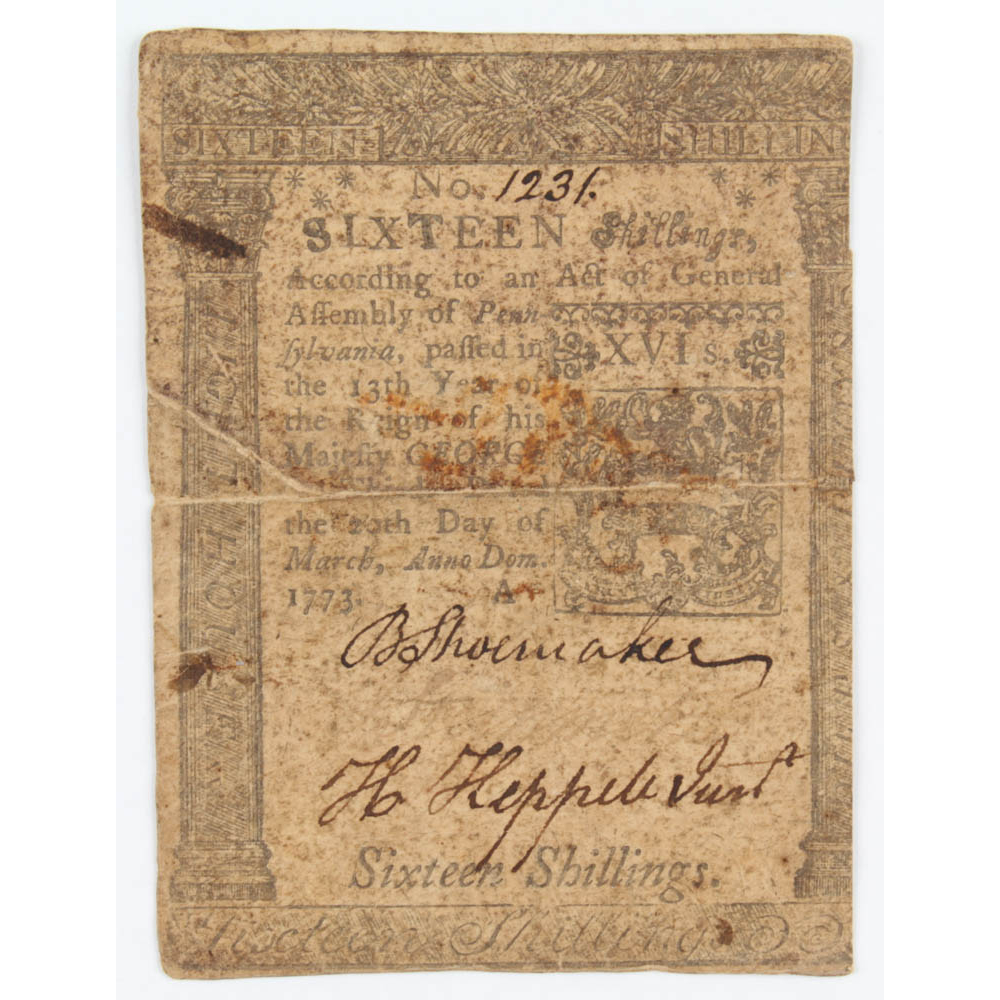 SIXTEEN SHILLIN
No. 1231.
SIXTEEN Shillings,
According to an Act of General
Aſſembly of Penn
ſylvania, paſſed in
the 13th Year of
the Reign of his
Majeſty GEORGE
the 20th Day of
March, Anno Dom.
1773. A
XVI s.
B Shoemaker
H Keppele Junr
Sixteen Shillings.
Sixteen Shillings